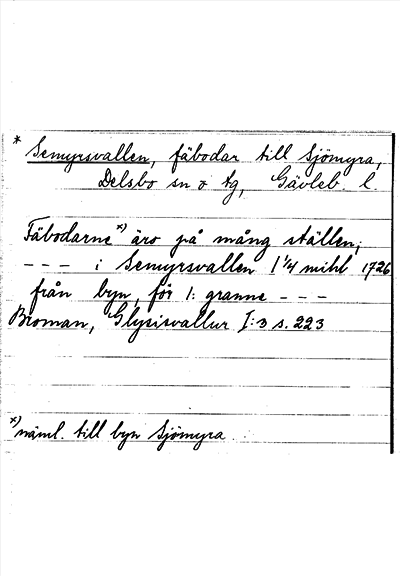 * Semyrsvallen, fäbodar till Sjömyra,
Delsbo sn o tg, Gävleb. l
Fäbodarne x) äro på mång ställen;
--- i Semyrsvallen 1 1/4 mihl 1726
från byn, för 1: granne ---
Broman, Glysisvallur I:3 s. 223
x) näml. till byn Sjömyra